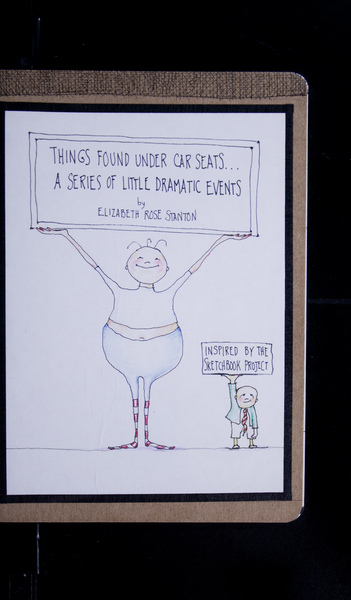 THINGS FOUND UNDER CAR SEATS...
A SERIES OF LITTLE DRAMATIC EVENTS
by
ELIZABETH ROSE STANTON
INSPIRED BY THE
SKETCHBOOK PROJECT